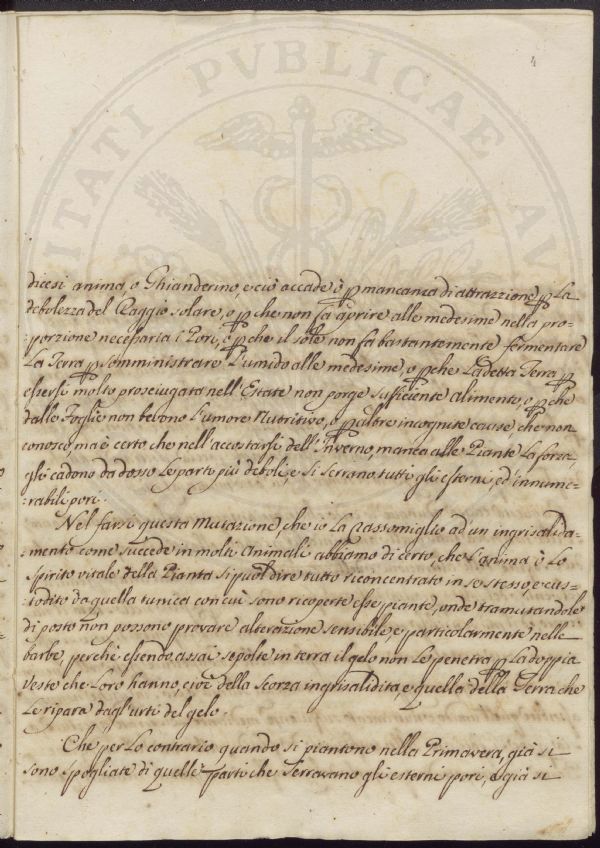 4
VTILITATI PVBLICAE AV
dicesi anima, o Ghianderino, e ciò accade ò p mancanza di attrazzione p La
debolezza del Raggio solare, o p che non fa aprire alle medesime nella pro=
=porzione necessaria i Pori, ò p che il sole non fa bastantemente fermentare
La Terra p somministrare L'umido alle medesime, o p che La detta Terra p
essersi molto prosciugata nell'Estate non porge suficiente alimento, o p che
dalle Foglie non bevono L'umore Nutritivo, o p altre incognite cause, che non
conosco, ma è certo che nell'accostarsi dell'Inverno, manca alle Piante La forza,
gli cadono da dosso Le parti più deboli, e si serrano tutti gli esterni, ed innume=
=rabili pori.
Nel farsi questa Mutazione, che io La Rassomiglio ad un ingrisalida=
=mento come succede in molti Animali abbiamo di certo, che L'anima ò Lo
spirito vitale della Pianta si puol dire tutto riconcentrato in se stesso, e cus=
=todito da quella tunica con cui sono ricoperte esse piante, onde tramutandole
di posto non possono provare alterazione sensibile, e particolarmente nelle
barbe, perchè essendo assai sepolte in terra il gelo non Le penetra p La doppia
Veste che Loro hanno, cioè della Scorza ingrisalidita, e quella della Terra che
Le ripara dagl'urti del gelo.
Che per Lo contrario, quando si piantono nella Primavera, già si
sono spogliate di quelle parti che serravano gli esterni pori, e già si